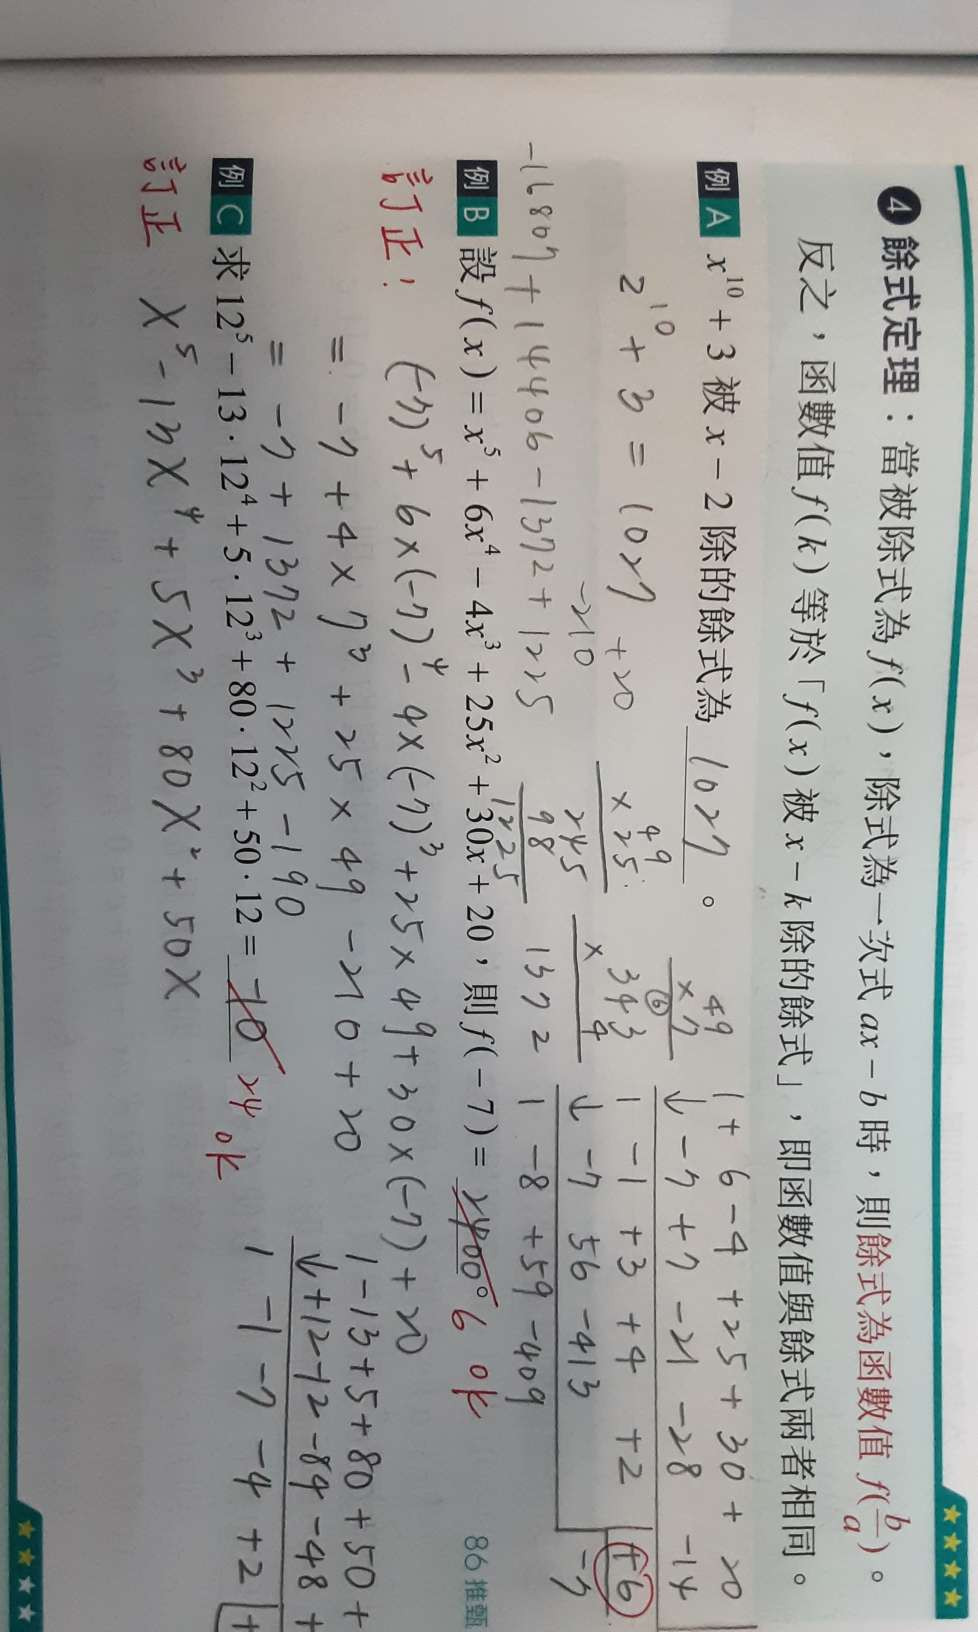 ❹ 餘式定理：當被除式為 f(x)，除式為一次式 ax－b 時，則餘式為函數值 f(b/a)。
反之，函數值 f(k) 等於「f(x) 被 x－k 除的餘式」，即函數值與餘式兩者相同。
例 A x¹⁰＋3 被 x－2 除的餘式為 1027 。
2¹⁰ + 3 = 1027
+20
-210
-16807 + 14406 - 1372 + 1225
49
× 25
245
98
1225
49
× 7
343
× 4
1372
1 + 6 - 4 + 25 + 30 + 20
↓ -7 + 7 - 21 - 28 - 14
1 -1 +3 +4 +2 +6
↓ -7 56 -413
1 -8 +59 -409
-7
例 B 設 f(x)＝x⁵＋6x⁴－4x³＋25x²＋30x＋20，則 f(－7)＝ 2400。 6 ok
86 推甄
訂正： (-7)⁵ + 6×(-7)⁴ - 4×(-7)³ + 25×49 + 30×(-7) + 20
= -7 + 4 × 7³ + 25 × 49 - 210 + 20
= -7 + 1372 + 1225 - 190
例 C 求 12⁵－13·12⁴＋5·12³＋80·12²＋50·12＝ -10 24 ok
訂正 X⁵ - 13X⁴ + 5X³ + 80X² + 50X
1 - 13 + 5 + 80 + 50 +
↓ +12 -12 -84 -48 +
1 -1 -7 -4 +2 +